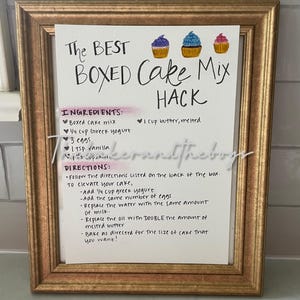 The BEST
BOXED Cake Mix
HACK
INGREDIENTS:
♥ Boxed cake mix ♥ 1 cup butter, melted
♥ 1/4 cup Greek yogurt
♥ 3 eggs
♥ 1 tsp vanilla
DIRECTIONS:
- Follow the directions listed on the back of the box
to elevate your cake,
- Add 1/4 cup greek yogurt
- Add the same number of eggs
- Replace the water with the same amount
of milk
- Replace the oil with DOUBLE the amount of
melted butter
- Bake as directed for the size of cake that
you want!